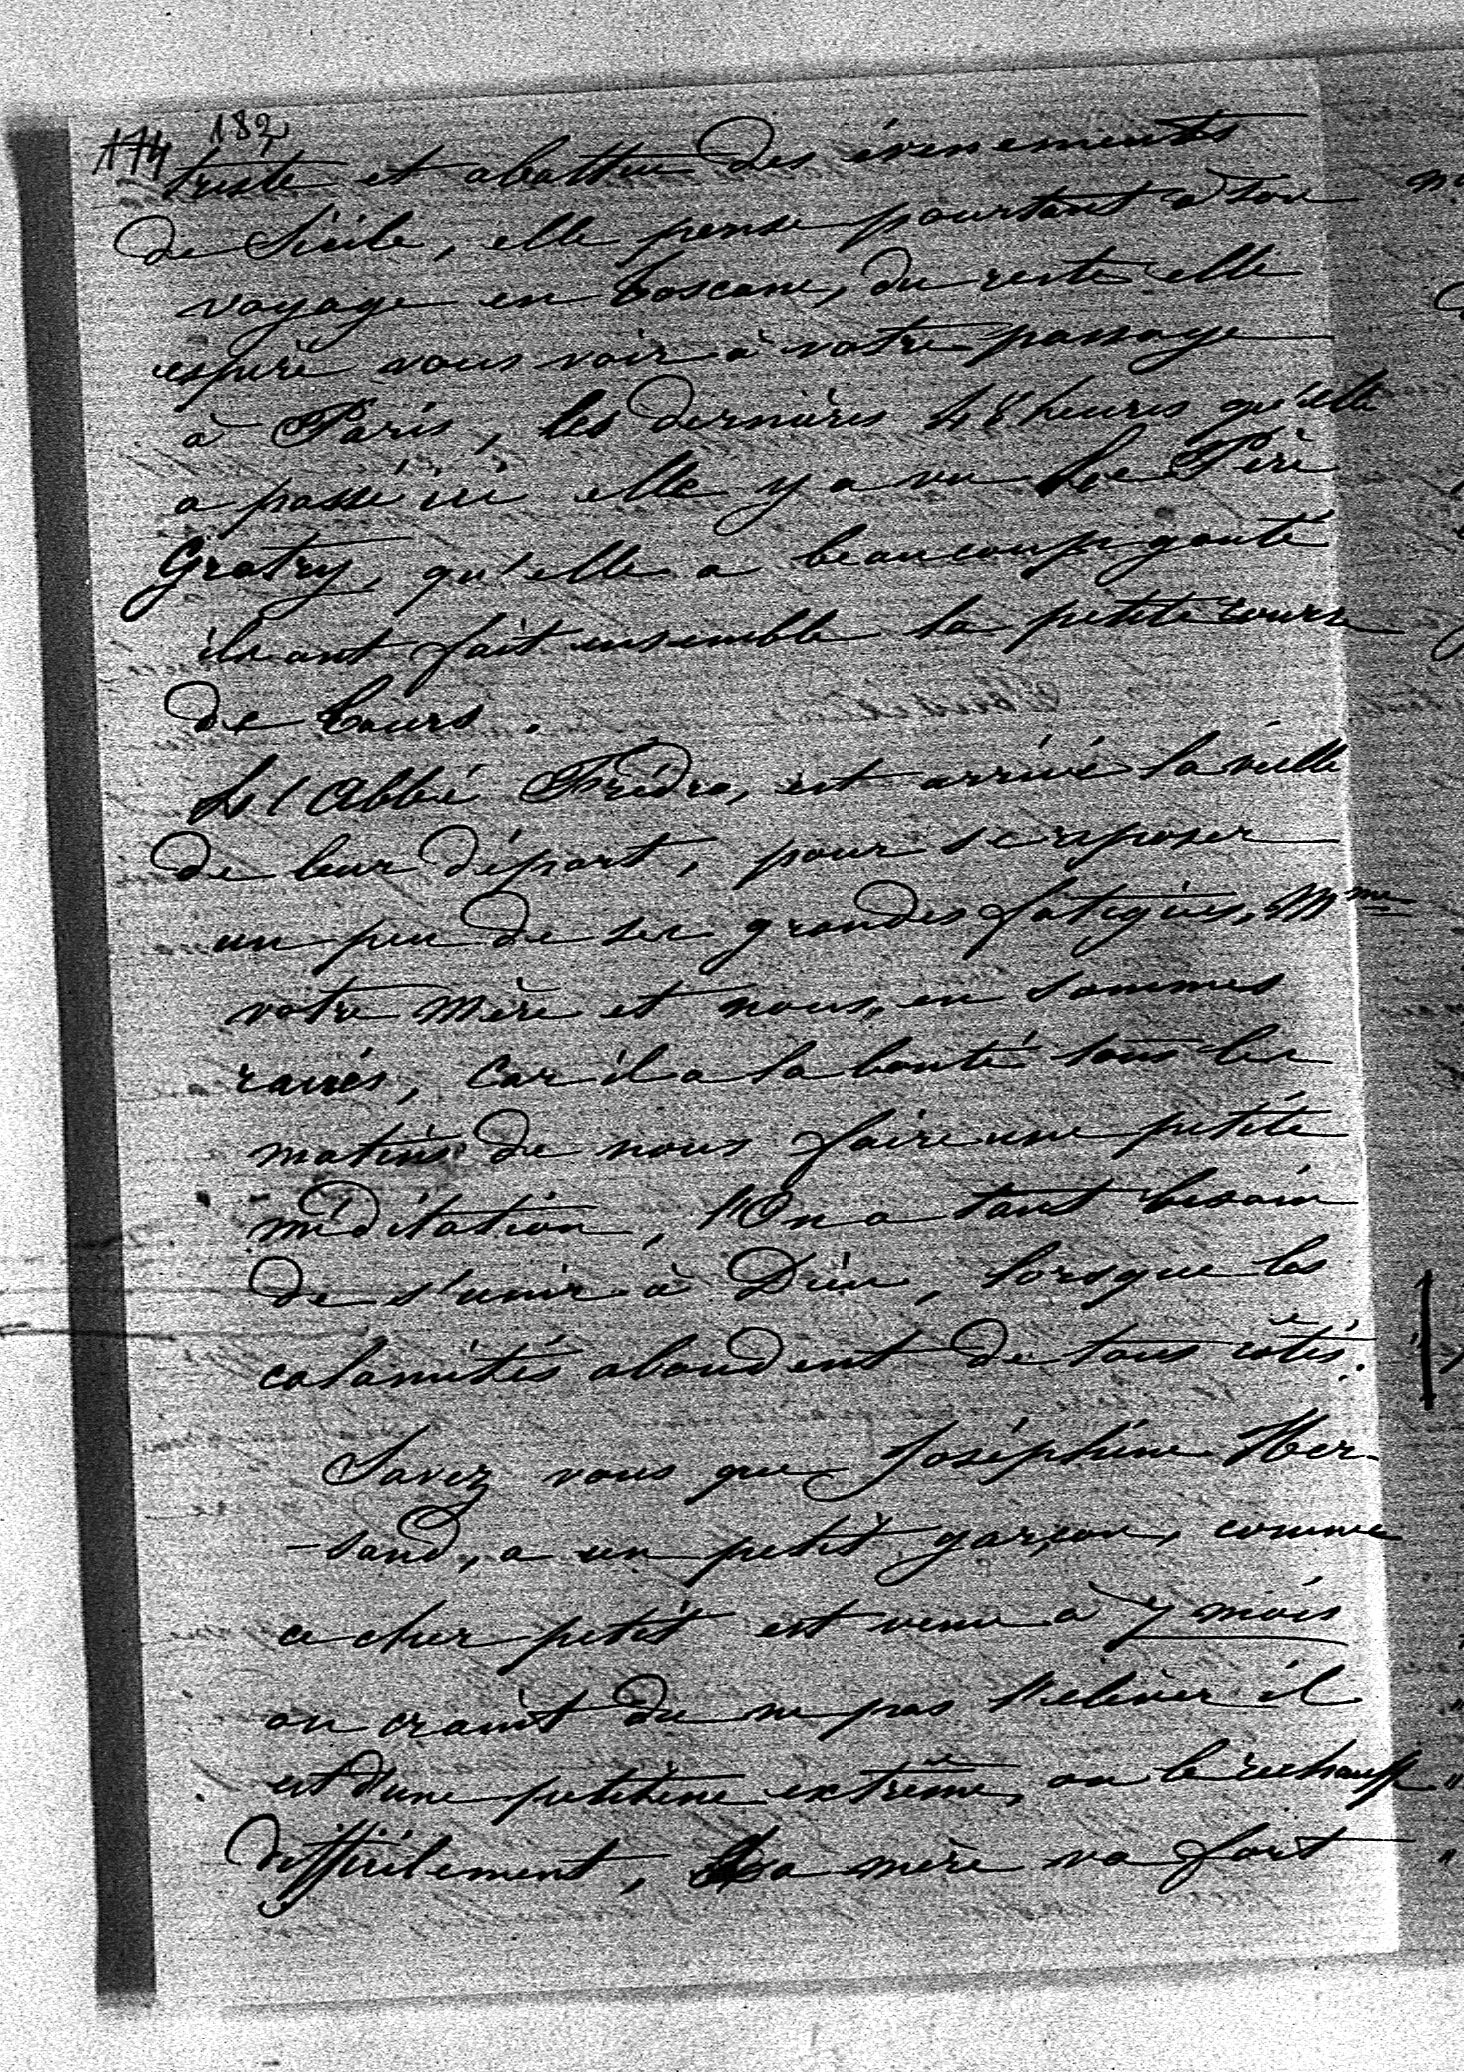 174 182
triste et abattue des évènements
de Sicile, elle pense pourtant à son
voyage en Toscane, du reste elle
espère vous voir à votre passage
à Paris, les dernières 48 heures qu'elle
a passé ici elle y a vu Le Père
Gratry, qu'elle a beaucoup gouté
ils ont fait ensemble la petite course
de Tours.
L'Abbé Frédro, est arrivé la veille
de leur départ, pour se reposer
un peu de ses grandes fatigues, Mme
votre Mère et nous, en sommes
ravies, car il a la bonté tous les
matins de nous faire une petite
méditation, l'On a tant besoin
de s'unir à Dieu, lorsque les
calamités abondent de tous côtés.
Savez vous que Joséphine Mer-
-sand, a un petit garçon, comme
ce cher petit est venu à 7 mois
on craint de ne pas l'élever il
est d'une petitesse extrême, on le réchauffe
difficilement, Sa mère va fort